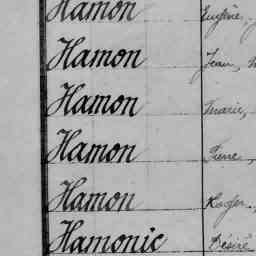 Hamon Eugène
Hamon Jean,
Hamon Marie,
Hamon Pierre,
Hamon Roger,
Hamonic Désiré